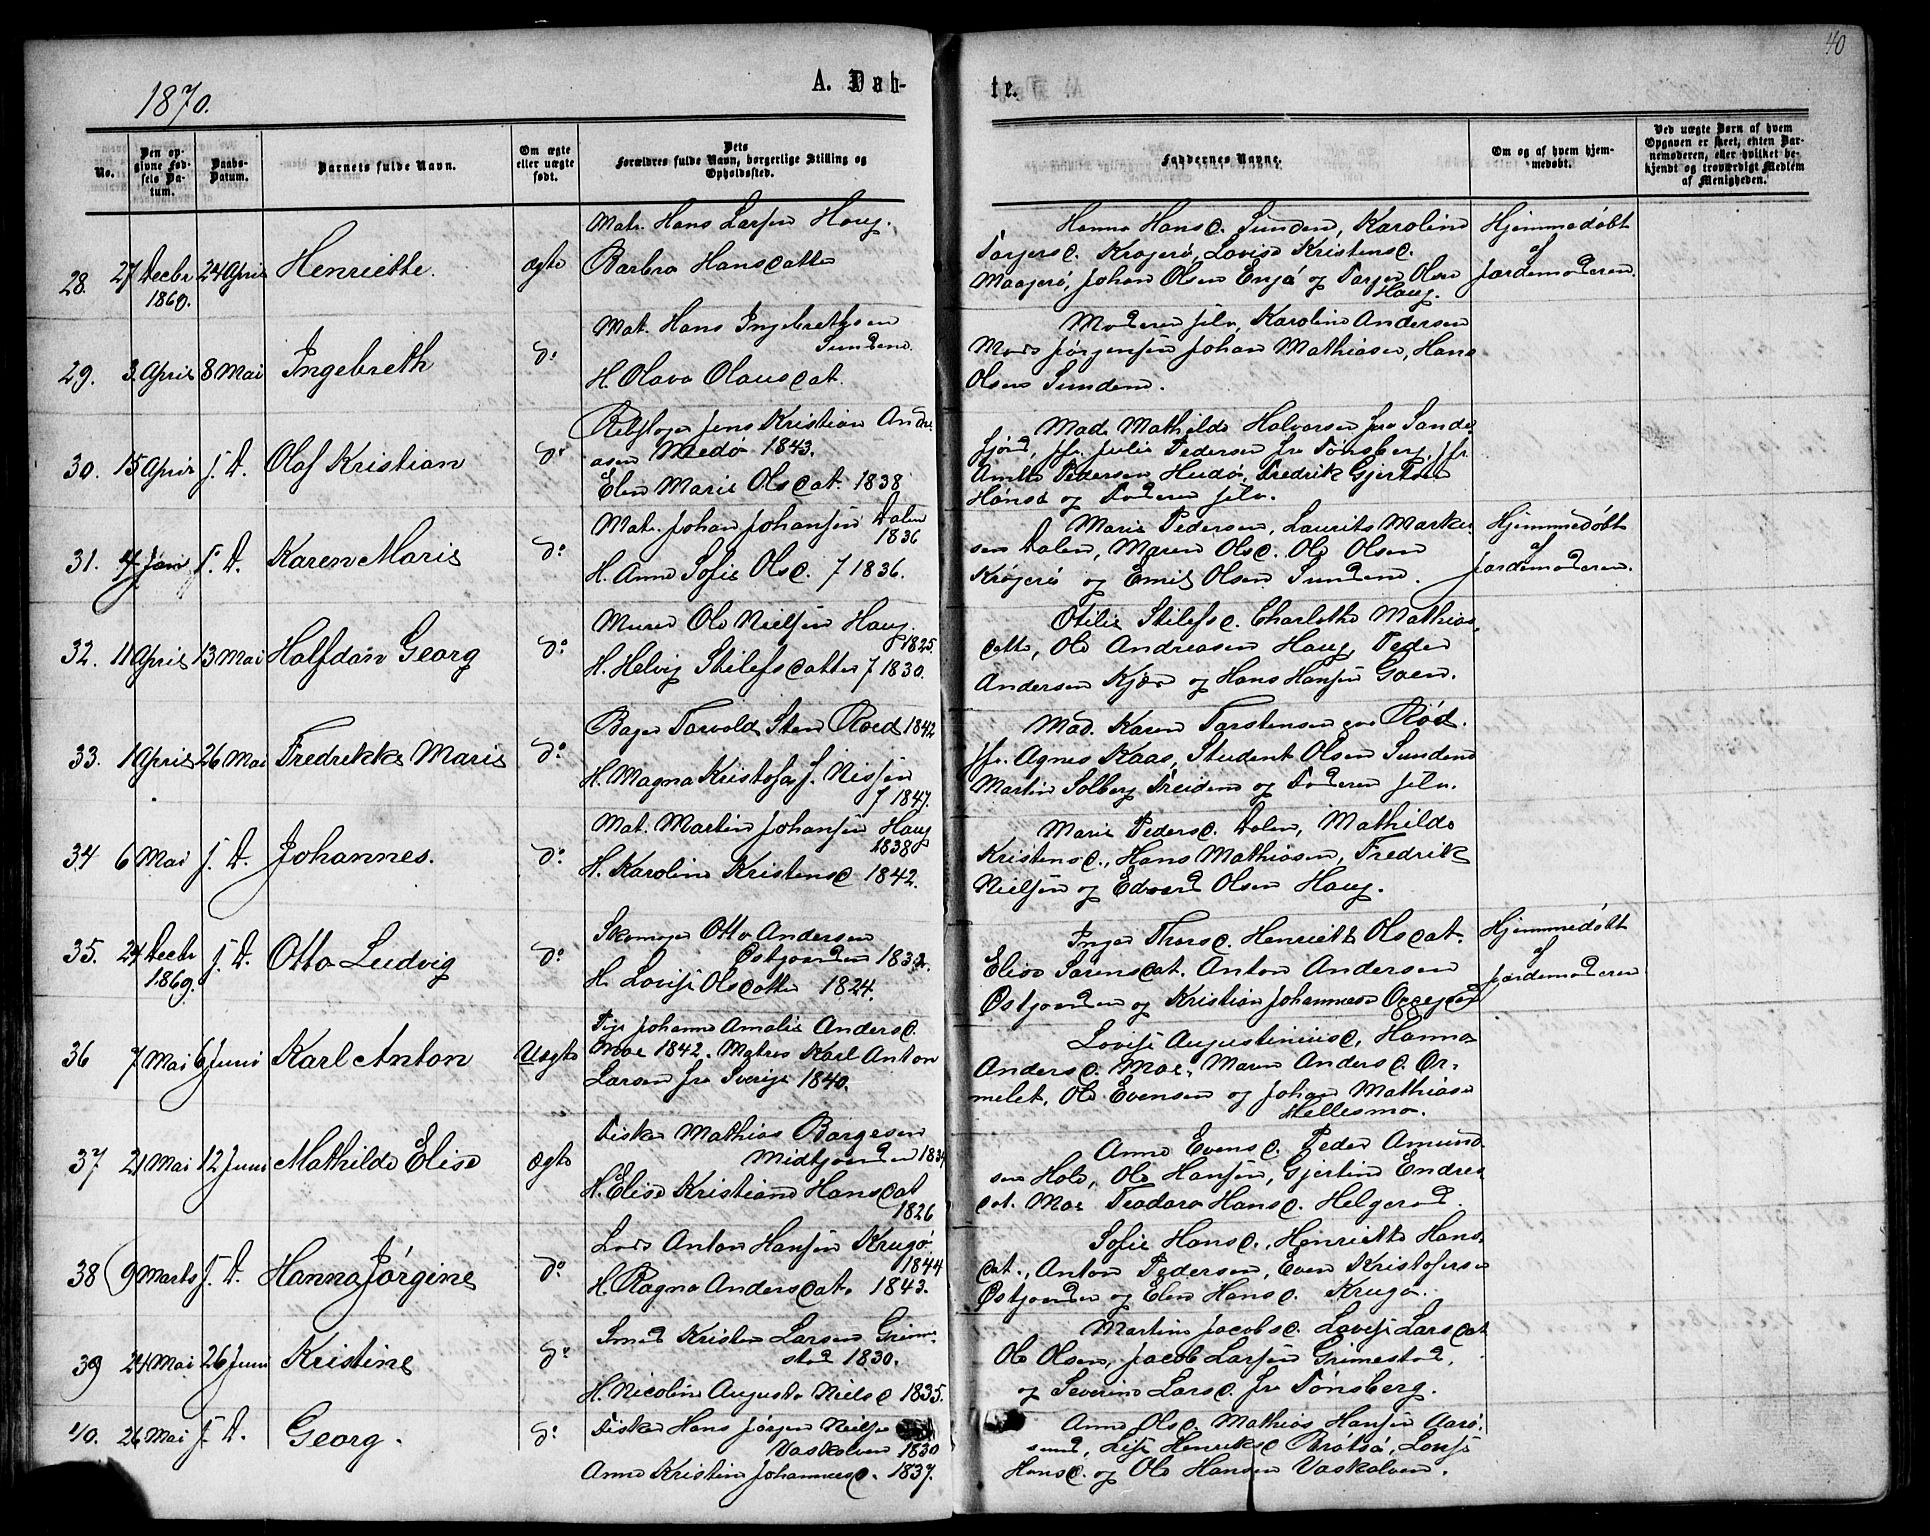 40
1870.
A. Døb-
te.
No.
Den op-
givne Fød-
sels Da-
tum.
Daabs-
Datum.
Barnets fulde Navn.
Om ægte
eller uægte
født.
Dets
Forældres fulde Navn, borgerlige Stilling og
Opholdssted.
Faddernes Navne.
Om og af hvem hjem-
medøbt.
Ved uægte Børn af hvem
Opgaven er skeet, enten Bar-
nemoderen, eller hvilket be-
kjendt og troværdigt Medlem
af Menigheden.
28. 27 Decbr 1869. 24 April Henriette. ægte
Matr. Hans Larsen Haug.
Barbro Hansdatter
Hanna Hansd. Sunden, Karoline
Torjersd. Krøgerø, Lovise Kristensd.
Maagerø, Johan Olsen Engø og Torger Olsen
Haug.
Hjemmedøbt
af
Jordemoderen.
29. 3 April 8 Mai Ingebreth do
Mat. Hans Ingebrethsen
Sundene.
H. Olava Olausdat.
Moderen selv, Karoline Andersen
Mads Jørgensen Johan Mathiasen, Hans
Olsen Sundene.
30. 15 April s. D. Olaf Kristian do
Rebslager Jens Kristian Andre-
asen Medø 1843.
Elen Marie Olsdat. 1838
Mad. Mathilde Halvorsen fra Sande-
fjord, jfr. Julie Pedersen fra Tønsberg, jfr.
Amalie Pedersen Huidø, Fredrik Gjertsen
Hansø og Faderen selv.
31. 4 Jan s. D. Karen Marie do
Mat. Johan Johansen Dalen
1836
H. Anne Sofie Olsd. f 1836.
Marie Pedersen, Laurits Marku-
sen Dalen, Maren Olsd. Ole Olsen
Krøgerø og Emil Olsen Sundene.
Hjemmedøbt
af
Jordemoderen.
32. 11 April 13 Mai Halfdan Georg do
Murer Ole Nielsen Haug.
1825.
H. Helvig Stilefsdatter f 1830.
Otilie Stilefsd. Charlotte Mathias-
datter, Ole Andreasen Haug, Peder
Andersen Kjær og Hans Hansen Gaen.
33. 1 April 26 Mai Fredrikke Marie do
Bager Torvald Sten Roed 1842
H. Magna Kristofa f. Nissen
f 1847.
Mad. Karen Torstensen Rød.
jfr. Agnes Kaas, Student Olsen Sundene
Martin Solberg Treiden og Faderen selv.
34 6 Mai s. D. Johannes. do
Mat. Martin Johansen Haug
1838
H. Karoline Kristensd 1842.
Marie Pedersd. Dalen, Mathilde
Kristensd., Hans Mathiasen, Fredrik
Nielsen og Edvard Olsen Haug.
35. 24 Decbr 1869. s. D. Otto Ludvig do
Skomager Otto Andersen
Østgaarden 1832.
H. Lovise Olsdatter 1824.
Inger Thorsd. Henriette Olsdat.
Elise Sørensdat. Anton Andersen
Østgaarden og Kristian Johannesen
Hjemmedøbt
af
Jordemoderen
36 7 Mai 6 Juni Karl Anton Uægte
Pige Johanne Amalie Andersd.
Moe 1842. Matros Karl Anton
Larsen fra Sverige 1840.
Lovise Augustiniusd, Hanna
Andersd. Moe, Maren Andersd. Or-
melet, Ole Evensen og Johan Mathiasen
Hellesmo.
37 21 Mai 12 Juni Mathilde Elise ægte
Fisker Mathias Børgesen
Midtgaarden 1834
H. Elise Kristiane Hansdat
1826
Anne Evensd. Peder Amund-
sen Hole, Ole Hansen, Gjertine Endres-
dat. Moe Teodora Hansd. Helgerød.
38 9 Marts s. D. Hanna Jørgine do
Lods Anton Hansen Krugø.
1844
H. Ragna Andersdat. 1843.
Sofie Hansd., Henriette Hans-
dat., Anton Pedersen, Even Kristofersen
Østgaarden og Elen Hansd. Krugø.
39 24 Mai 26 Juni Kristine do
Smed Kristen Larsen Grime-
stad 1830.
H. Nicoline Augusta Nielsd 1835.
Martine Jacobsd. Lovise Larsdat
Ole Olsen, Jacob Larsen Grimestad,
og Severine Larsd. fra Tønsberg.
40. 26 Mai s. D. Georg. do
Fisker Hans Jørgen Nielsen
Vaskalven 1830
Anne Kristine Johannesd. 1837.
Anne Olsd. Mathias Hansen Aarø-
sund, Lise Henriksd Brøtsø, Lovise
Hansd. og Ole Hansen Vaskalven.